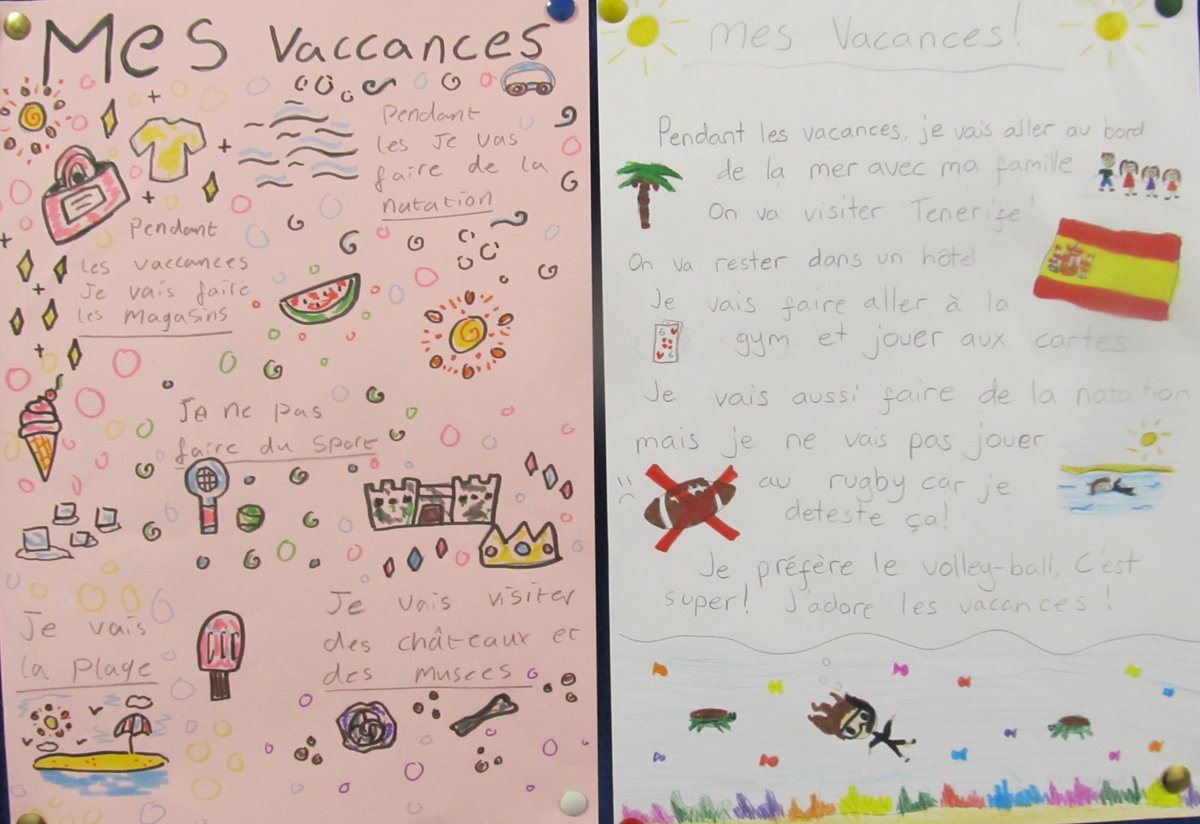 Mes Vaccances
Pendant
les Je vas
faire de la
natation
Pendant
les vaccances
Je vais faire
les magasins
Je ne pas
faire du sport
Je vais
la plage
Je vais visiter
des châteaux et
des musees
Mes Vacances!
Pendant les vacances, je vais aller au bord
de la mer avec ma famille
On va visiter Tenerife!
On va rester dans un hôtel
Je vais faire aller à la
gym et jouer aux cartes
Je vais aussi faire de la natation
mais je ne vais pas jouer
au rugby car je
deteste ça!
Je préfère le volley-ball, C'est
super! J'adore les vacances!